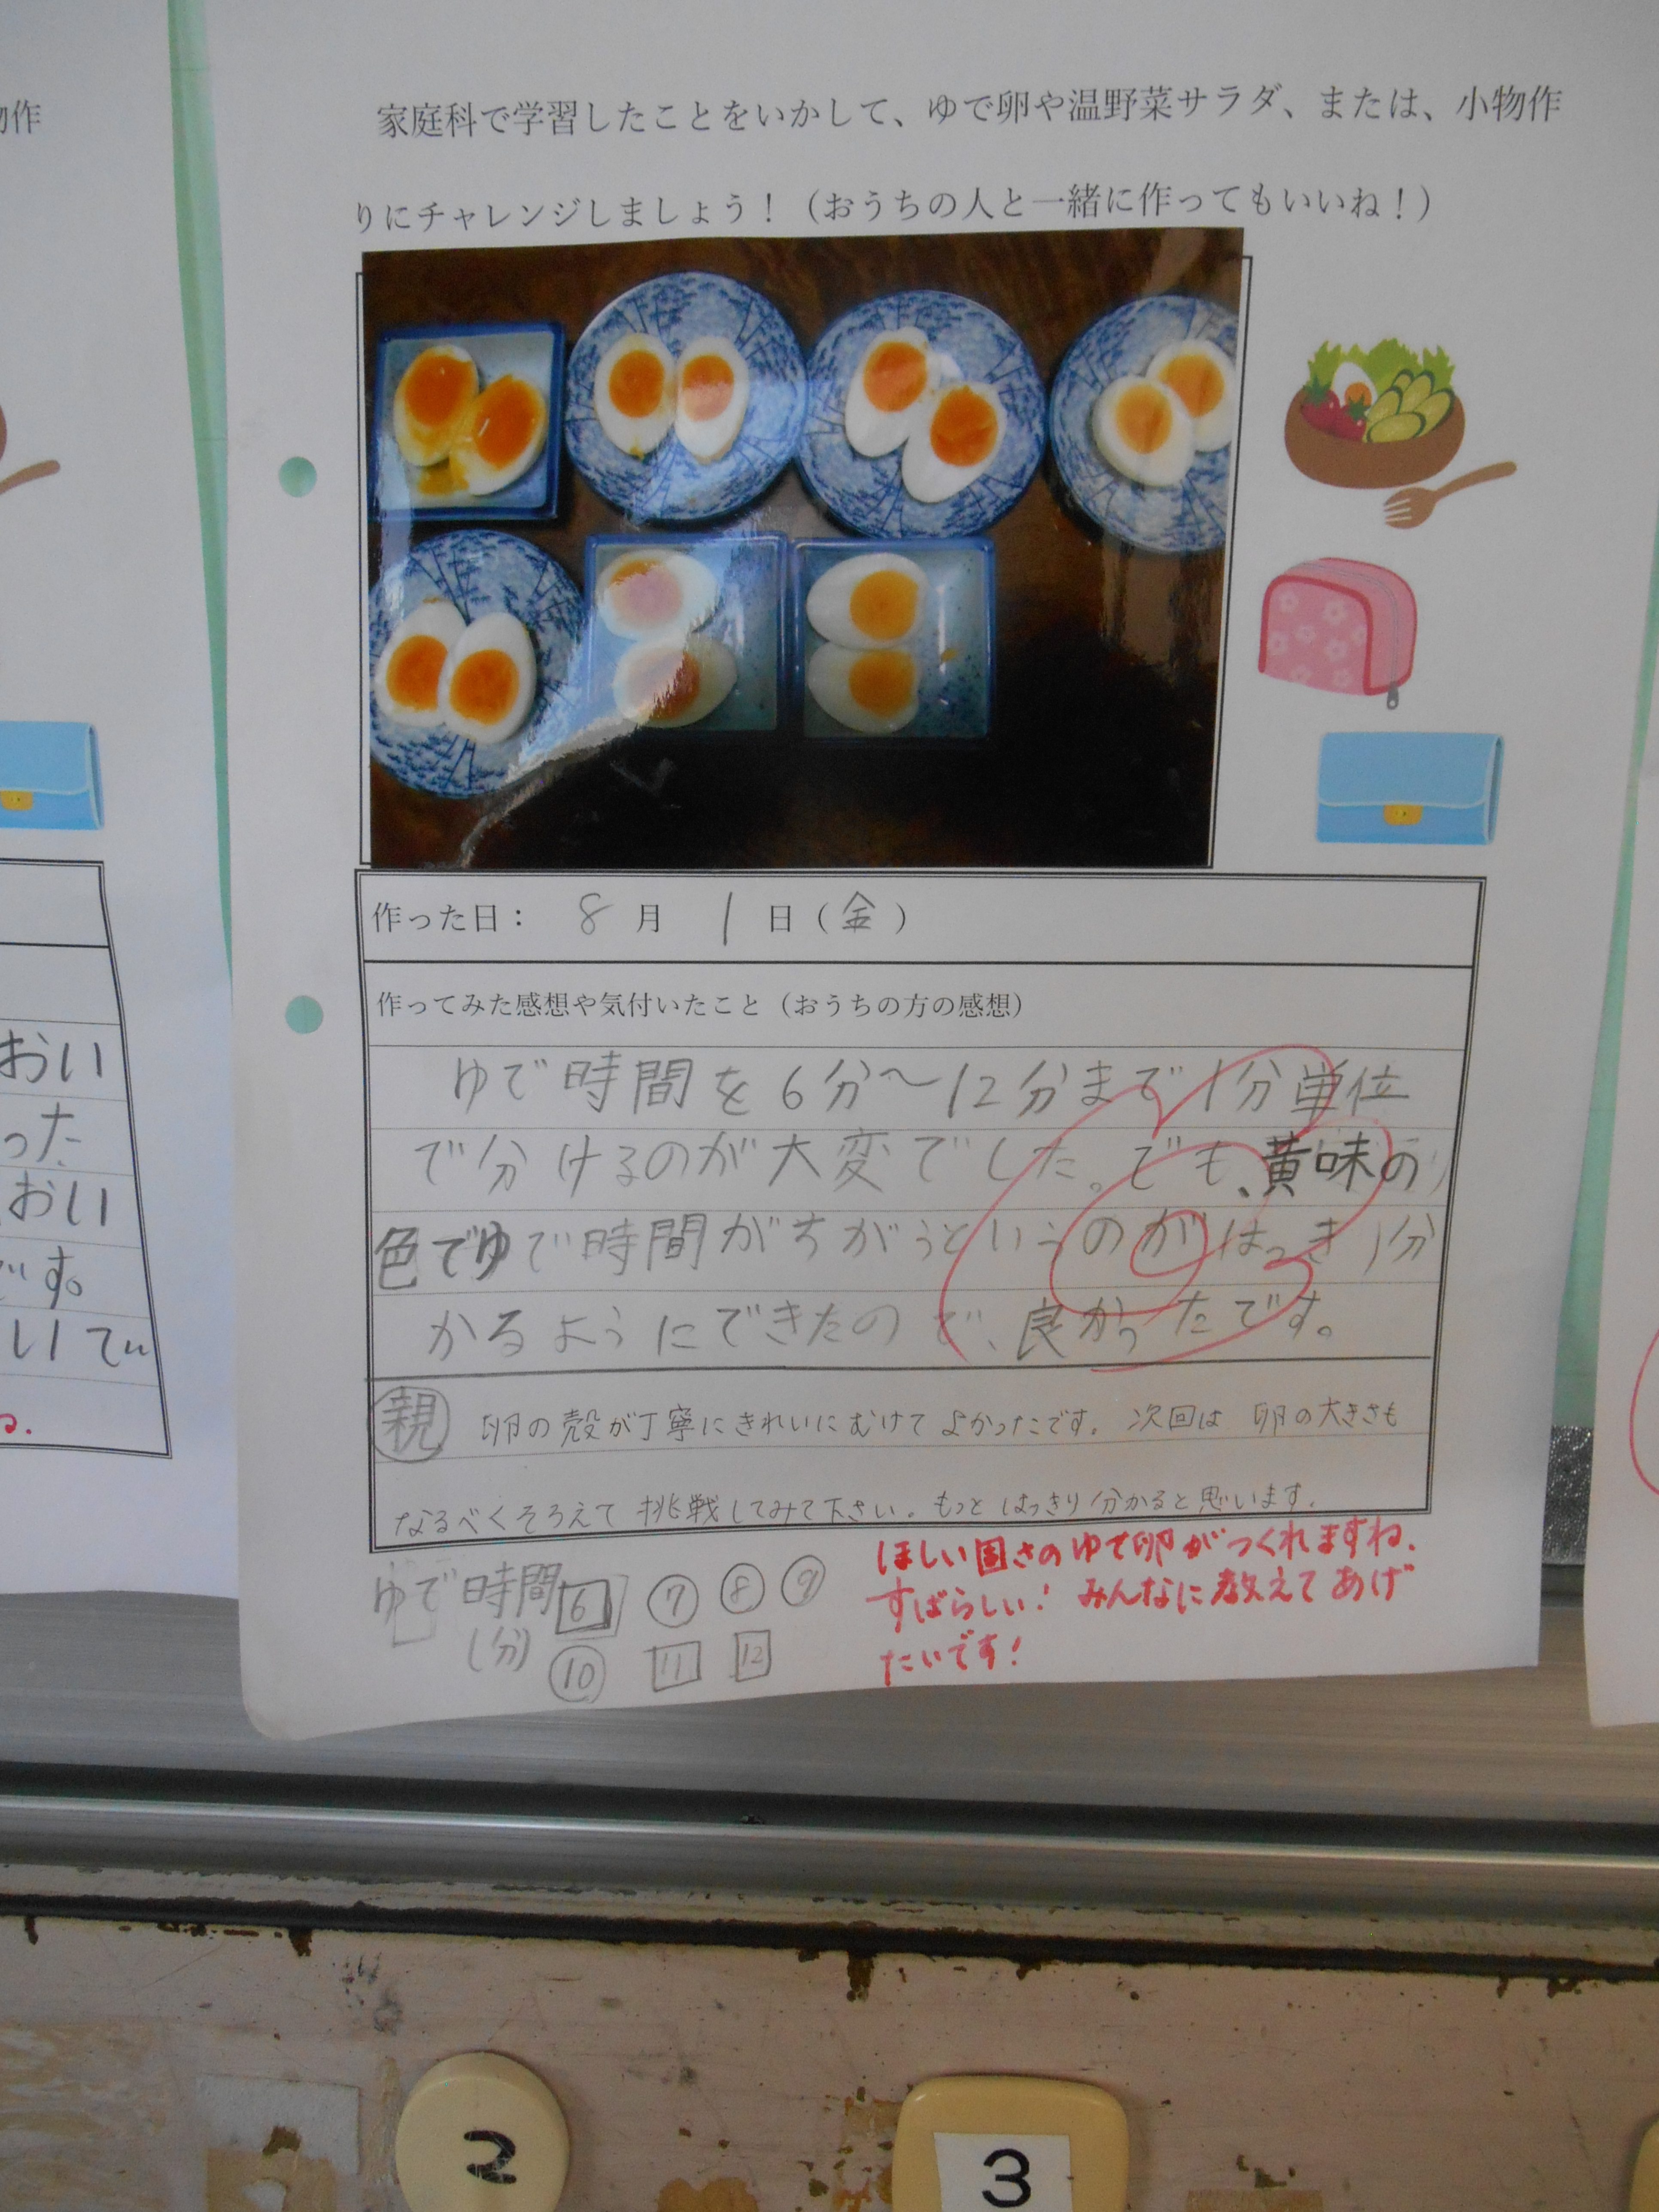 家庭科で学習したことをいかして、ゆで卵や温野菜サラダ、または、小物作
りにチャレンジしましょう！（おうちの人と一緒に作ってもいいね！）
作った日： 8 月 1 日（金）
作ってみた感想や気付いたこと（おうちの方の感想）
ゆで時間を6分〜12分まで1分単位
で分けるのが大変でした。でも、黄味の
色でゆで時間がちがうというのがはっきり分
かるようにできたので、良かったです。
親 卵の殻が丁寧にきれいにむけてよかったです。次回は 卵の大きさも
なるべくそろえて挑戦してみて下さい。もっとはっきり分かると思います。
ゆで時間 6 7 8 9
(分) 10 11 12
ほしい固さのゆで卵がつくれますね.
すばらしい！みんなに教えてあげ
たいです！
物作
おい
った
おい
です。
いてい
ね.
2
3